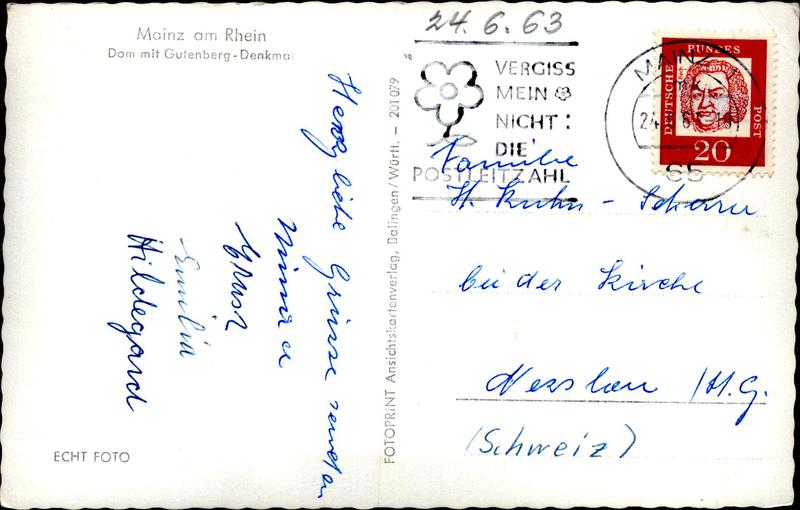 Mainz am Rhein
Dom mit Gutenberg-Denkmal
Herzliche Grüsse senden
Ernst
Emilia
Hildegard
ECHT FOTO
FOTOPRINT Ansichtskartenverlag, Balingen/Württ. – 201079
24. 6. 63
VERGISS
MEIN
NICHT:
DIE
POSTLEITZAHL
MAINZ
65
DEUTSCHE BUNDESPOST
20
Familie
H. Kuhn –
bei der Kirche
Nesslau
(Schweiz)